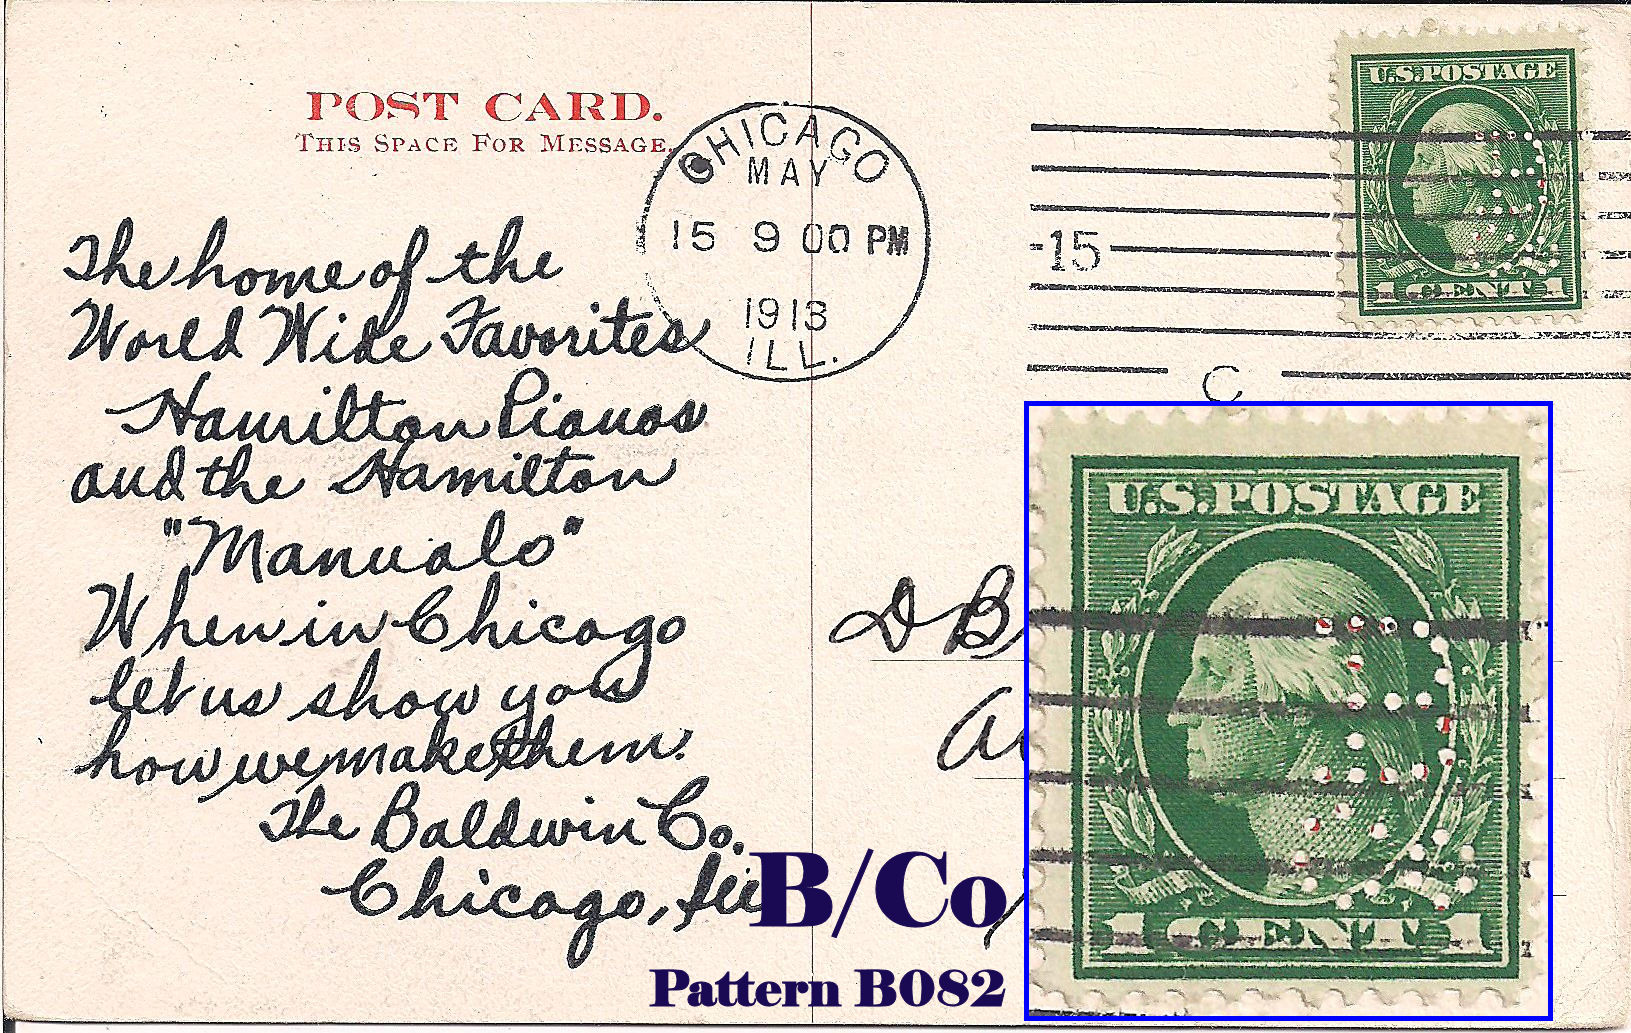 POST CARD.
THIS SPACE FOR MESSAGE.
CHICAGO
MAY
15 9 00 PM
1913
ILL.
-15
C
U.S. POSTAGE
1 CENT 1
The home of the
World Wide Favorites
Hamilton Pianos
and the Hamilton
"Manualo"
When in Chicago
let us show you
how we make them.
The Baldwin Co.
Chicago, Ill
D B
U.S. POSTAGE
1 CENT 1
B/Co
Pattern B082